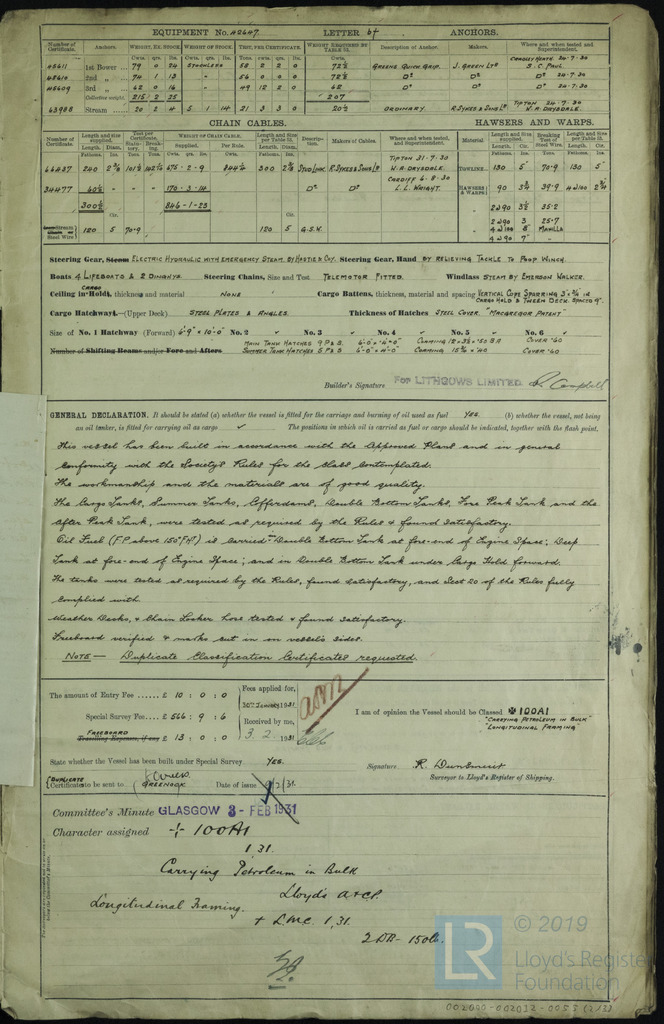 EQUIPMENT No. 42647. LETTER bt ANCHORS.
Number of Certificate. Anchors. WEIGHT, EX. STOCK. WEIGHT OF STOCK. TEST, PER CERTIFICATE. WEIGHT REQUIRED BY TABLE 53. Description of Anchor. Makers. Where and when tested and Superintendent.
Cwts. qrs. lbs. Cwts. qrs. lbs. Tons. cwts. qrs. lbs. Cwts.
45611 1st Bower 79 0 24 STOCKLESS 58 2 2 0 72½ GREENS QUICK GRIP. J. GREEN LTD CRADLEY HEATH 24-7-30 S.C. PAUL
2nd " 74 1 13 " 56 0 0 0 72½ Do Do Do 24-7-30
45609 3rd " 62 0 16 " 49 12 2 0 62 Do Do Do 24-7-30
Collective weight 215 2 25 207
63988 Stream 20 2 4 5 1 14 21 3 3 0 20½ ORDINARY R. SYKES & SONS LD TIPTON 24-7-30 W.A. DRYSDALE.
CHAIN CABLES. HAWSERS AND WARPS.
Number of Certificate. Length and size supplied. Test per Certificate. WEIGHT OF CHAIN CABLE. Length and size per Table 53. Description. Makers of Cables. Where and when tested, and Superintendent. Material. Length and size supplied. Breaking Test of Steel Wire. Length and size per Table 53.
Length. Diam. Statutory. Breaking. Supplied. Per Rule. Length. Diam. Length. Cir. Length. Cir.
Fathoms. Ins. Tons. Tons. Cwts. Cwts. Fathoms. Ins. Fathoms. Ins. Tons. Fathoms. Ins.
66437 240 675-2-9 844¼ 300 STUD LINK R. SYKES & SONS LD TIPTON 31-7-30 W.A. DRYSDALE. TOWLINE 130 5 70·9 130 5
34477 60½ " " 170-3-14 Do Do CARDIFF 6-8-30 L.L. WRIGHT. HAWSERS & WARPS 90 3¾ 39·9
300½ 846-1-23 " 2@90 3½ 35·2
" 2@90 3 25·7
Stream Steel Wire 120 5 70·9 120 5 G.S.W. " 4@120 8 MANILLA
" 4@90 7 "
Steering Gear, Steam ELECTRIC HYDRAULIC WITH EMERGENCY STEAM. BY HASTIE & COY. Steering Gear, Hand BY RELIEVING TACKLE TO POOP WINCH.
Boats 4 LIFEBOATS & 2 DINGHYS. Steering Chains, Size and Test TELEMOTOR FITTED. Windlass STEAM BY EMERSON WALKER.
Ceiling in CARGO Hold, thickness and material NONE Cargo Battens, thickness, material and spacing VERTICAL COPE SPARRING 3"x¾" IN CARGO HOLD & TWEEN DECK. SPACED 9".
Cargo Hatchways.—(Upper Deck) STEEL PLATES & ANGLES. Thickness of Hatches STEEL COVER. "MACGREGOR PATENT"
Size of No. 1 Hatchway (Forward) 6'-9" x 10'-0" No. 2 No. 3 No. 4 No. 5 No. 6
MAIN TANK HATCHES 9 P & S. 6'-0" x 4'-0" COAMING COVER ·60
Number of Shifting Beams and/or Fore and Afters SUMMER TANK HATCHES 5 P & S 6'-0" x 4'-0" COAMING COVER ·60
Builder's Signature FOR LITHGOWS LIMITED.
GENERAL DECLARATION. It should be stated (a) whether the vessel is fitted for the carriage and burning of oil used as fuel YES. (b) whether the vessel, not being
an oil tanker, is fitted for carrying oil as cargo ✓ The positions in which oil is carried as fuel or cargo should be indicated, together with the flash point.
This vessel has been built in accordance with the Approved Plans and in general
conformity with the Society's Rules for the Class Contemplated.
The workmanship and the materials are of good quality.
The Cargo Tanks, Summer Tanks, Cofferdams, Double Bottom Tanks, Fore Peak Tank and the
After Peak Tank, were tested as required by the Rules & found satisfactory.
Oil Fuel (F.P. above 150°F) is carried in Double Bottom Tank at fore-end of Engine Space; Deep
Tank at fore-end of Engine Space; and in Double Bottom Tank under Cargo Hold forward.
The tanks were tested as required by the Rules, found satisfactory, and Sect 20 of the Rules fully
complied with
Weather Decks, & Chain Locker hose tested & found satisfactory.
Freeboard verified & marks cut in on vessel's sides.
NOTE — Duplicate Classification Certificates requested.
The amount of Entry Fee £ 10 : 0 : 0 Fees applied for, 30th January 1931.
Special Survey Fee £ 566 : 9 : 6 Received by me,
FREEBOARD Travelling Expenses, if any £ 13 : 0 : 0 3. 2. 1931
I am of opinion the Vessel should be Classed ✠ 100A1
"CARRYING PETROLEUM IN BULK"
"LONGITUDINAL FRAMING"
State whether the Vessel has been built under Special Survey YES.
Signature
Surveyor to Lloyd's Register of Shipping.
(DUPLICATE) Certificate to be sent to GREENOCK Date of issue 9/2/31.
Committee's Minute GLASGOW 3-FEB 1931
Character assigned + 100A1
1.31.
Carrying Petroleum in Bulk
Longitudinal Framing.
Lloyd's A&CP.
+ LMC. 1.31.
2DB- 150lb.
LR
© 2019
Lloyd's Register
Foundation
002000-002012-0053 (2/3)